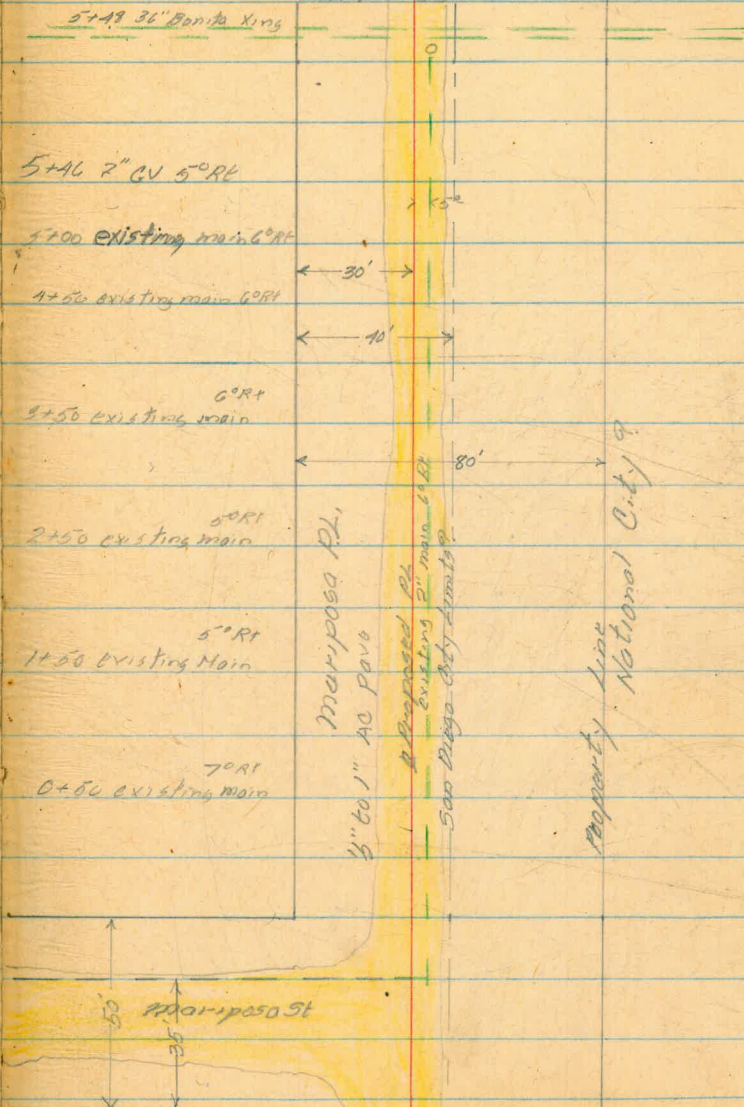 5+48 36" Bonita Xing
5+46 2" GV 5° Rt
5+00 existing main 6° Rt
4+50 existing main 6° Rt
6° Rt
3+50 existing main
5° Rt
2+50 existing main
5° Rt
1+50 existing Main
7° Rt
0+50 existing main
5°
30'
40'
80'
Mariposa PL.
½" to 1" AC Pavg
Proposed PL
existing 2" main 6° Rt
San Diego City Limits?
Property Line
National City?
Mariposa St
50'
35'